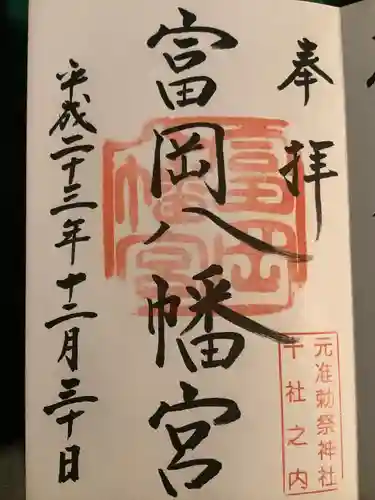 奉拝
富岡八幡宮
富岡八幡宮
元准勅祭神社
十社之内
平成二十三年十二月三十日